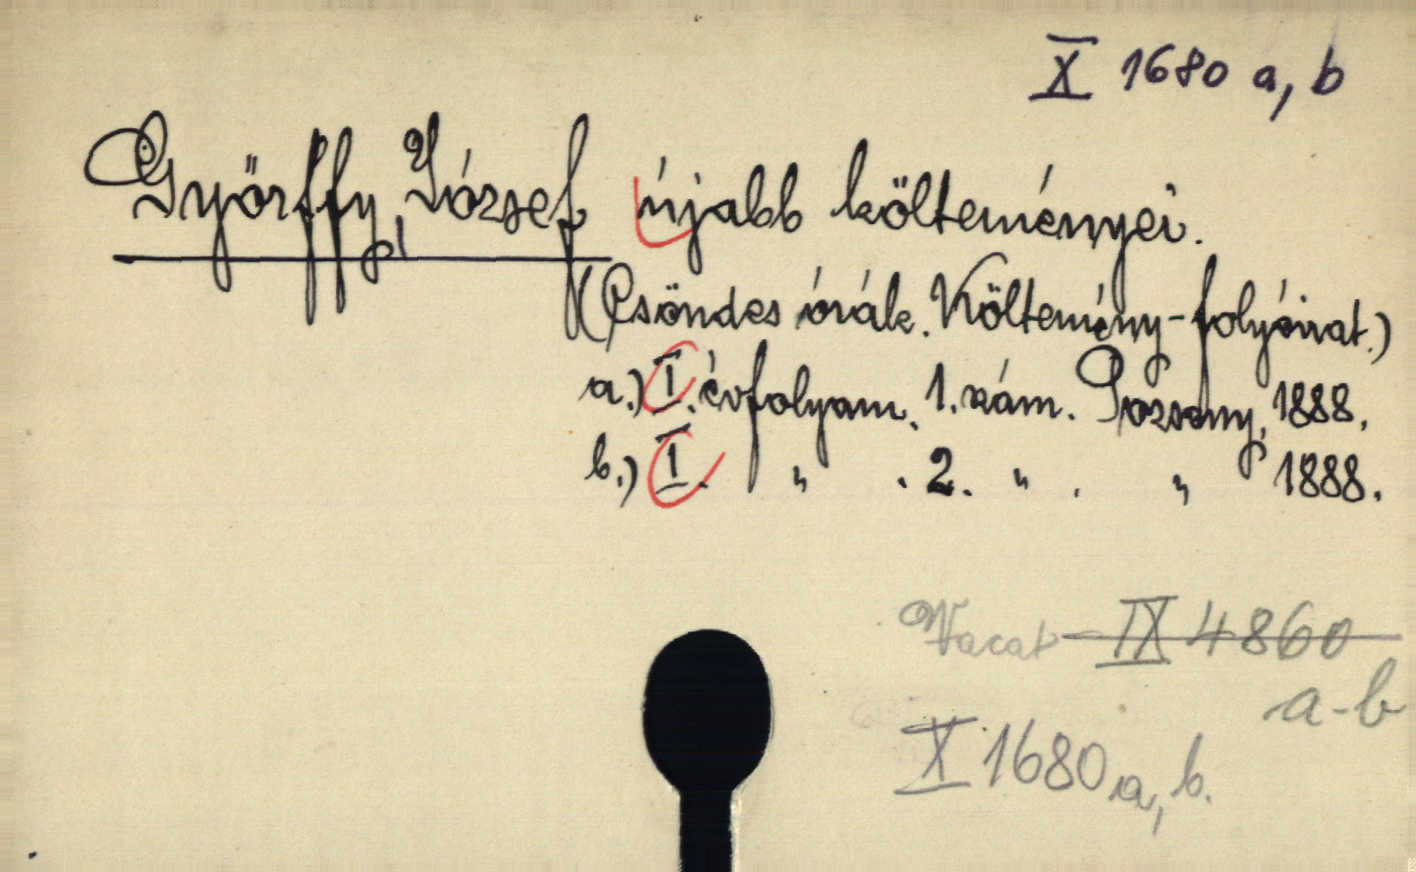 X 1680 a, b
Györffy, József újabb költeményei.
(Csöndes órák. Költemény-folyóirat.)
a.) I. évfolyam. 1. szám. Pozsony, 1888.
b.) I. " . 2. " . " 1888.
Vacat IX 4860
a-b
X 1680 a, b.